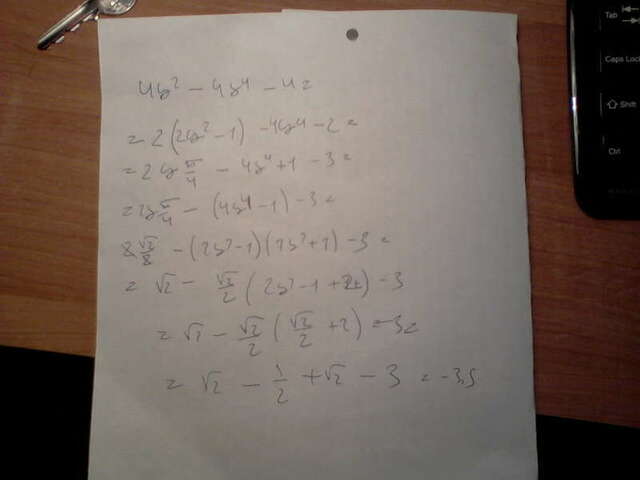 4y² - 4y⁴ - 4 =
= 2(2y² - 1) - 4y⁴ - 2 =
= 2 y π/4 - 4y⁴ + 1 - 3 =
= 2y π/4 - (4y⁴ - 1) - 3 =
2 √2/2 - (2y² - 1)(2y² + 1) - 3 =
= √2 - √2/2 (2y² - 1 + 2) - 3
= √2 - √2/2 (√2/2 + 2) - 3 =
= √2 - 1/2 + √2 - 3 = -3,5
Tab
Caps Lock
Shift
Ctrl